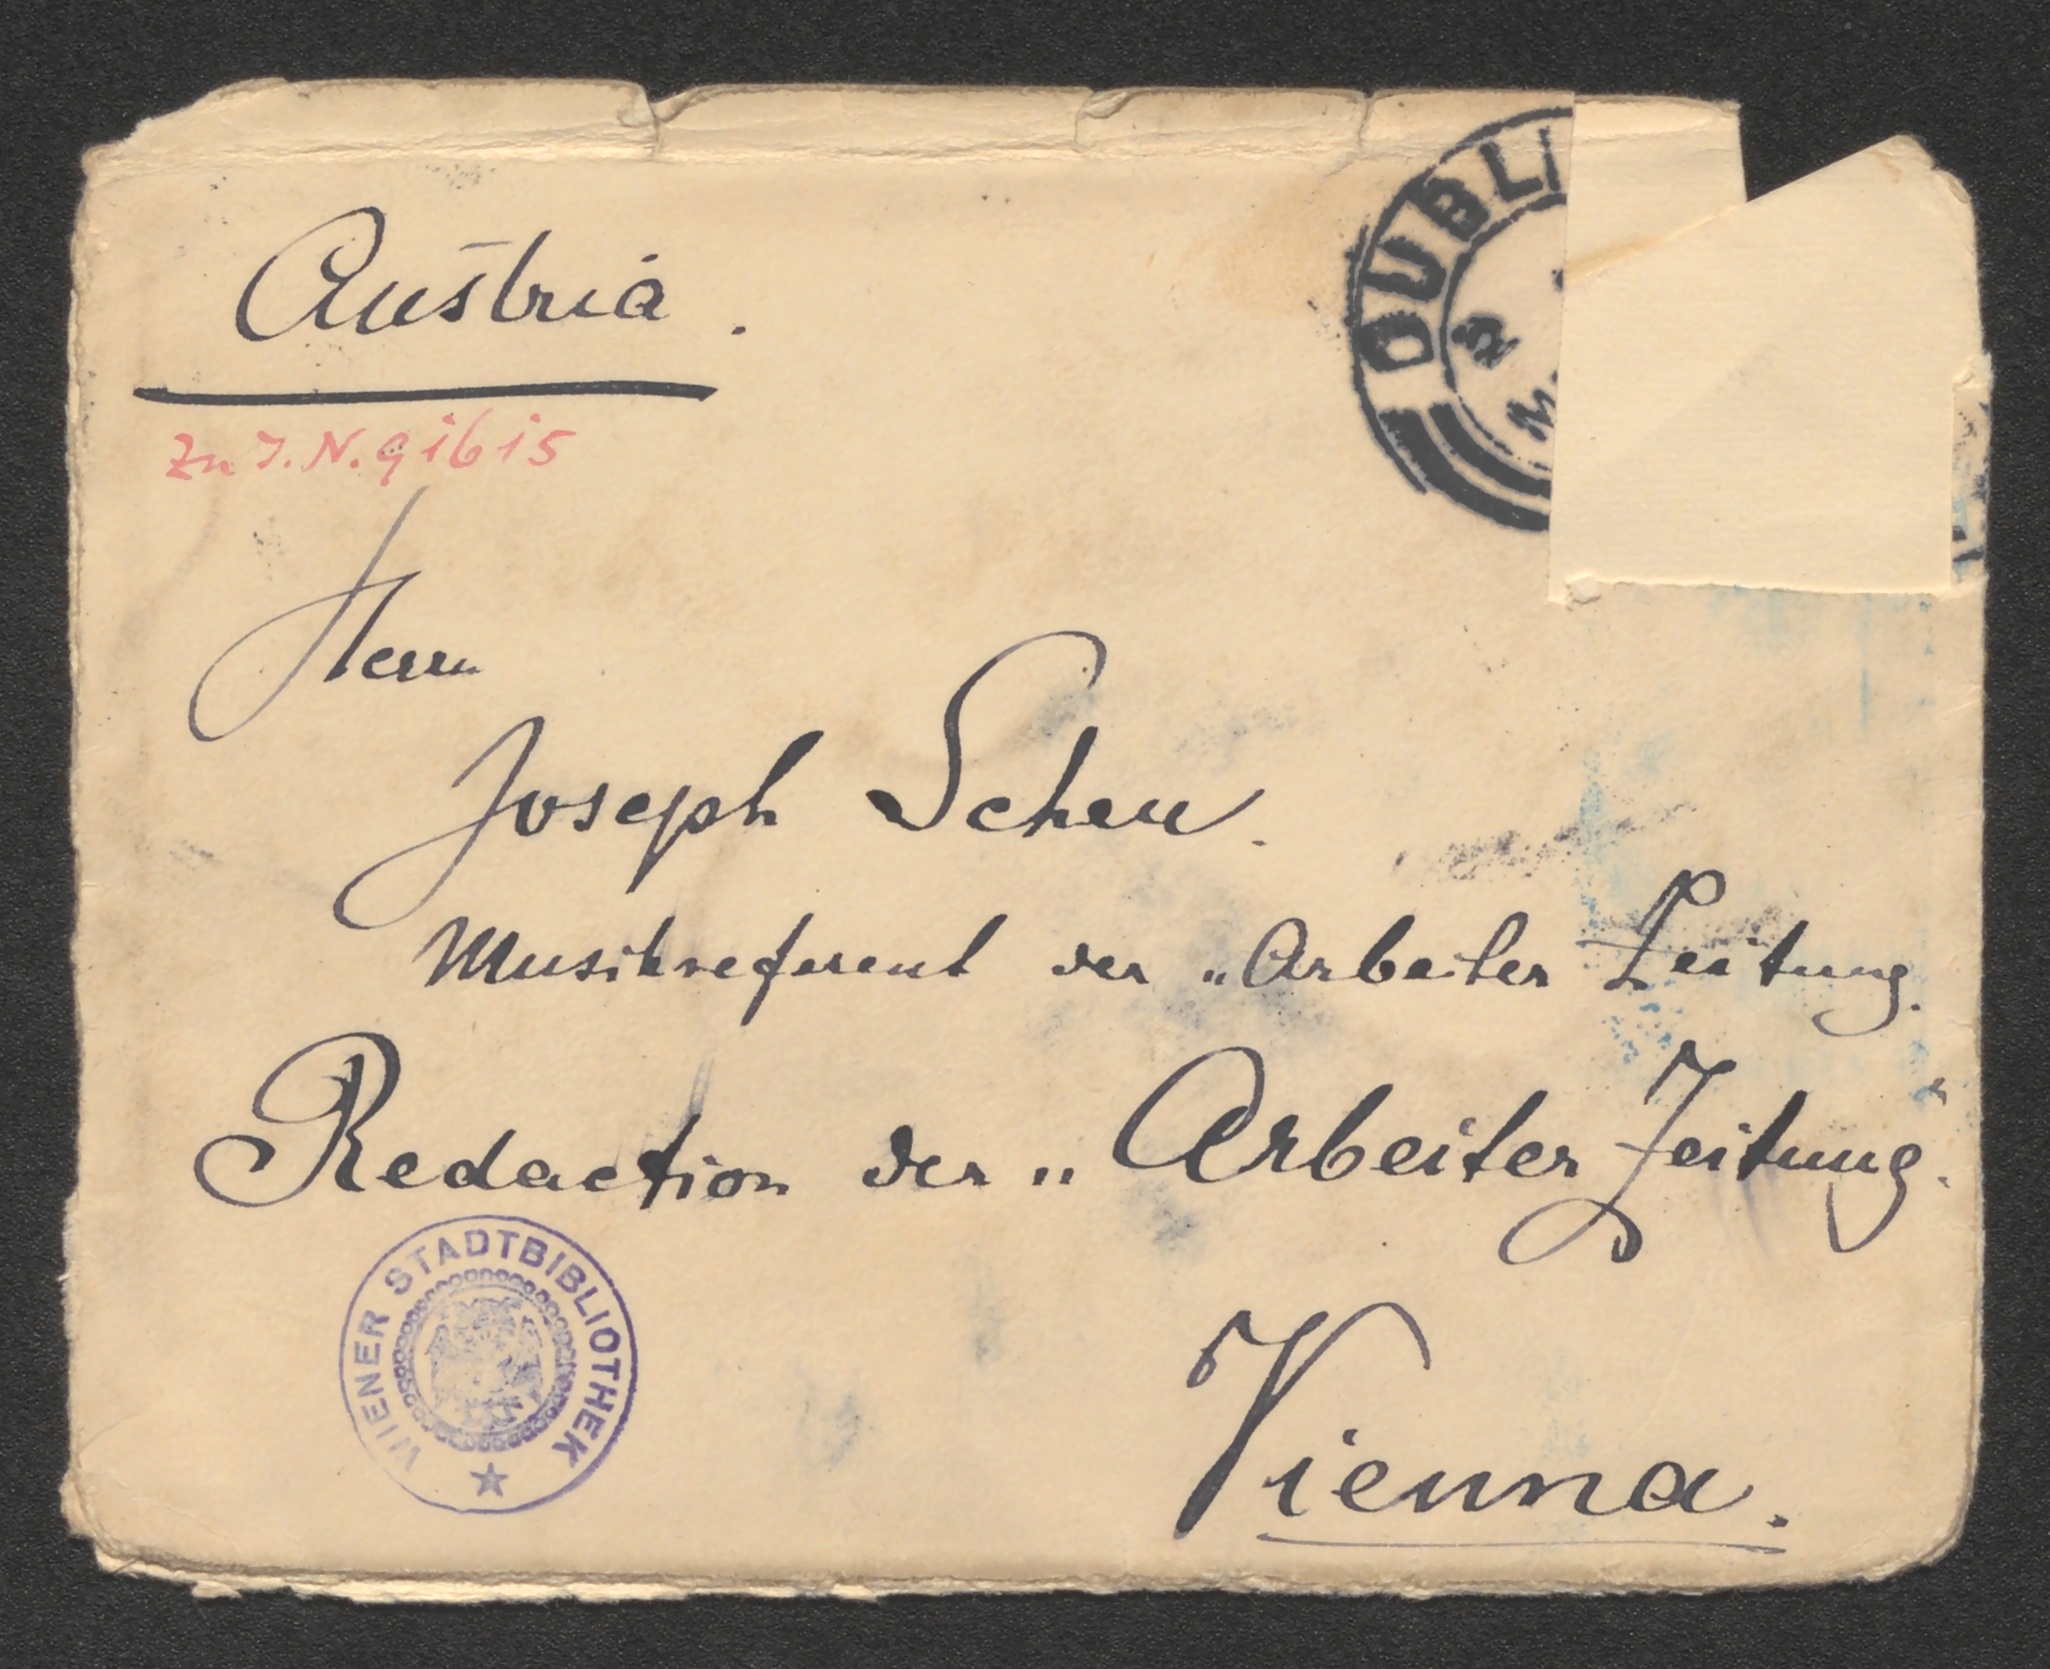 Austria.
DUBLI
2
Zu J.N. 91615
Herrn
Joseph Scheu.
Musikreferent der „Arbeiter Zeitung.
Redaction der „Arbeiter Zeitung".
WIENER STADTBIBLIOTHEK
Vienna.